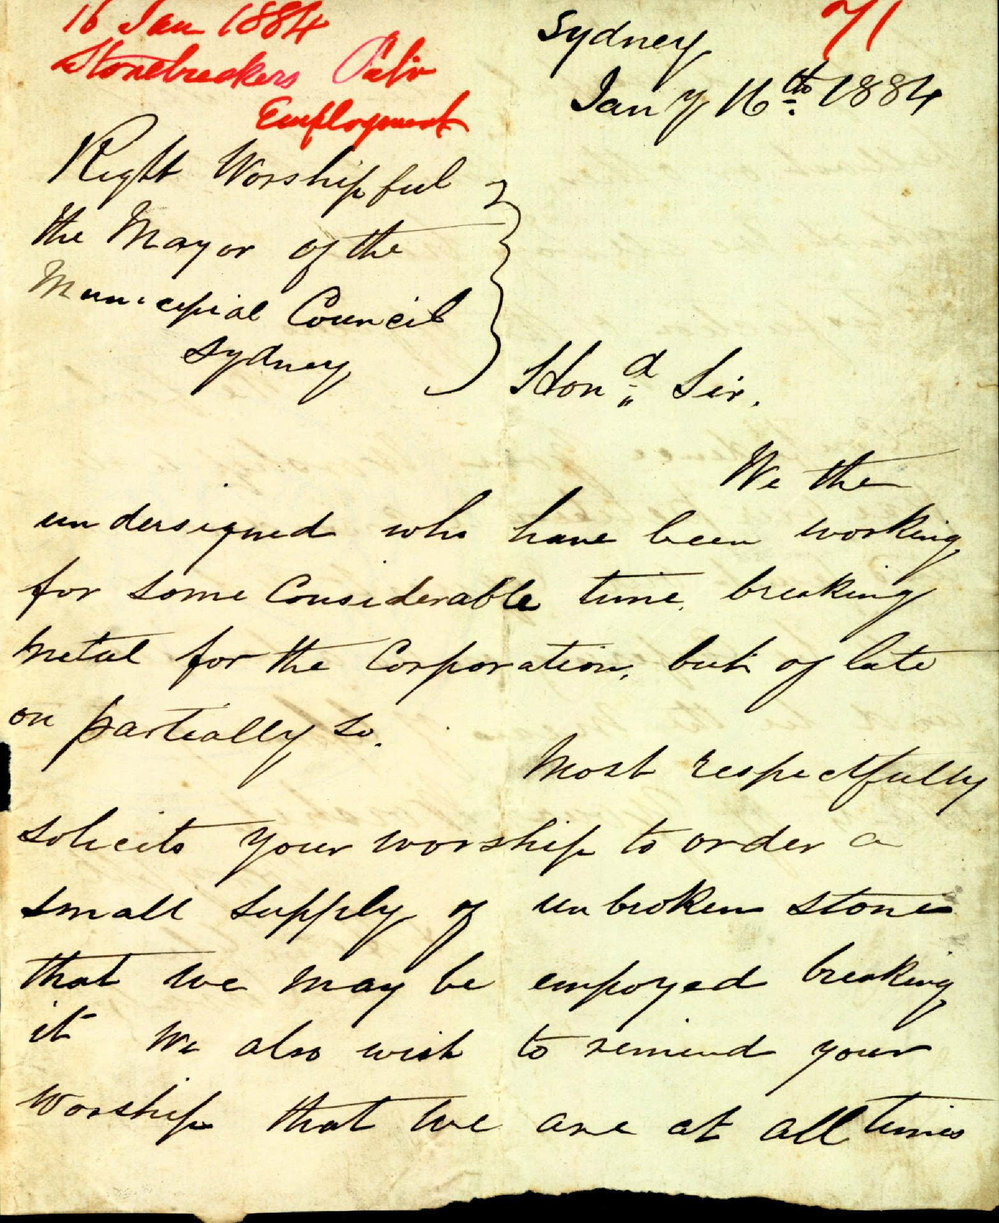 16 Jan 1884
Stonebreakers Petn
Employment
71
Sydney
Jany 16th 1884
Right Worshipful
the Mayor of the
Municipial Council
Sydney
Hond Sir.
We the
undersigned who have been working
for some Considerable time, breaking
metal for the Corporation, but of late
on partially so.
Most respectfully
solicits your worship to order a
small supply of unbroken stone
that we may be empoyed breaking
it We also wish to remind your
Worship that we are at all times